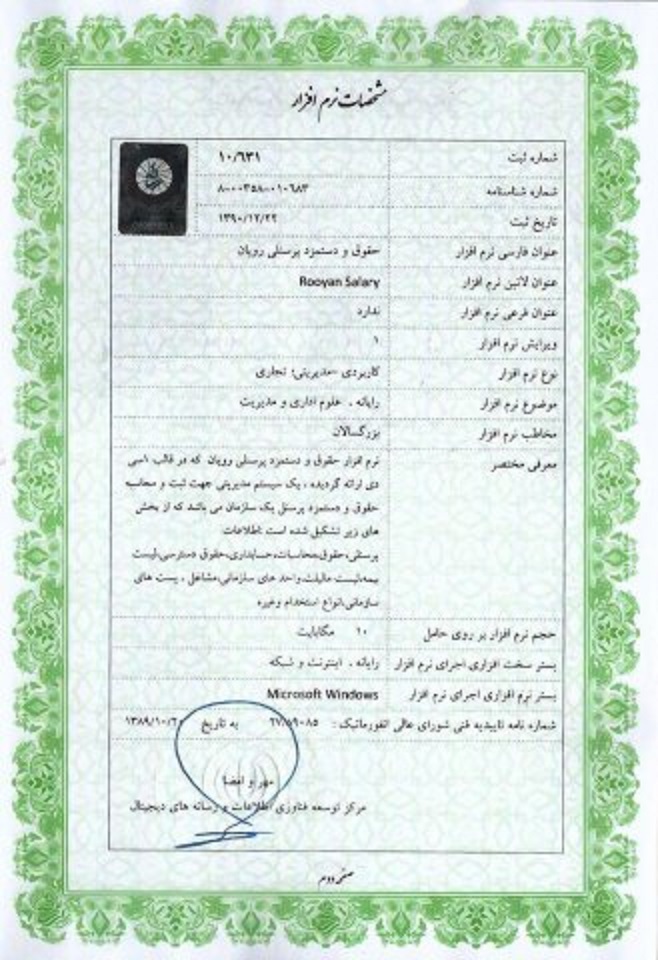 مشخصات نرم افزار
شماره ثبت ۱۰/۶۳۱
شماره شناسنامه ۸-۰۰۳۵۸-۰۱۰۶۸۳
تاریخ ثبت ۱۳۹۰/۱۲/۲۲
عنوان فارسی نرم افزار حقوق و دستمزد پرسنلی رویان
عنوان لاتین نرم افزار Rooyan Salary
عنوان فرعی نرم افزار ندارد
ویرایش نرم افزار ۱
نوع نرم افزار کاربردی -مدیریتی؛ تجاری
موضوع نرم افزار رایانه ، علوم اداری و مدیریت
مخاطب نرم افزار بزرگسالان
معرفی مختصر نرم افزار حقوق و دستمزد پرسنلی رویان که در قالب ۱سی
دی ارائه گردیده ، یک سیستم مدیریتی جهت ثبت و محاسبه
حقوق و دستمزد پرسنل یک سازمان می باشد که از بخش
های زیر تشکیل شده است :اطلاعات
پرسنلی،حقوق،محاسبات،حسابداری،حقوق دسترسی،لیست
بیمه،لیست مالیات،واحد های سازمانی،مشاغل ، پست های
سازمانی،انواع استخدام وغیره
حجم نرم افزار بر روی حامل ۱۰ مگابایت
بستر سخت افزاری اجرای نرم افزار رایانه ، اینترنت و شبکه
بستر نرم افزاری اجرای نرم افزار Microsoft Windows
شماره نامه تاییدیه فنی شورای عالی انفورماتیک : به تاریخ
مهر و امضا
مرکز توسعه فناوری اطلاعات و رسانه های دیجیتال
صفحه دوم